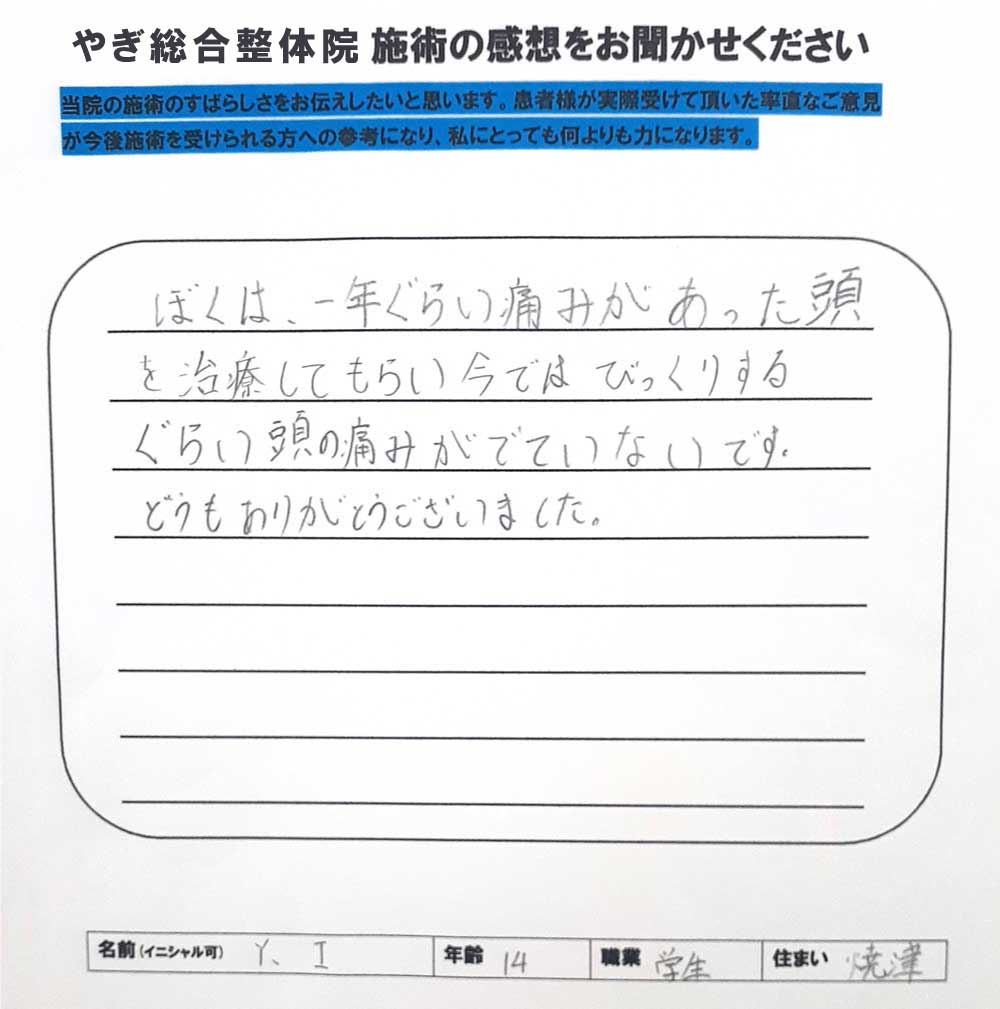 やぎ総合整体院 施術の感想をお聞かせください
当院の施術のすばらしさをお伝えしたいと思います。患者様が実際受けて頂いた率直なご意見
が今後施術を受けられる方への参考になり、私にとっても何よりも力になります。
ぼくは、一年ぐらい痛みがあった頭
を治療してもらい今ではびっくりする
ぐらい頭の痛みがでていないです。
どうもありがとうございました。
名前(イニシャル可) Y、I 年齢 14 職業 学生 住まい 焼津